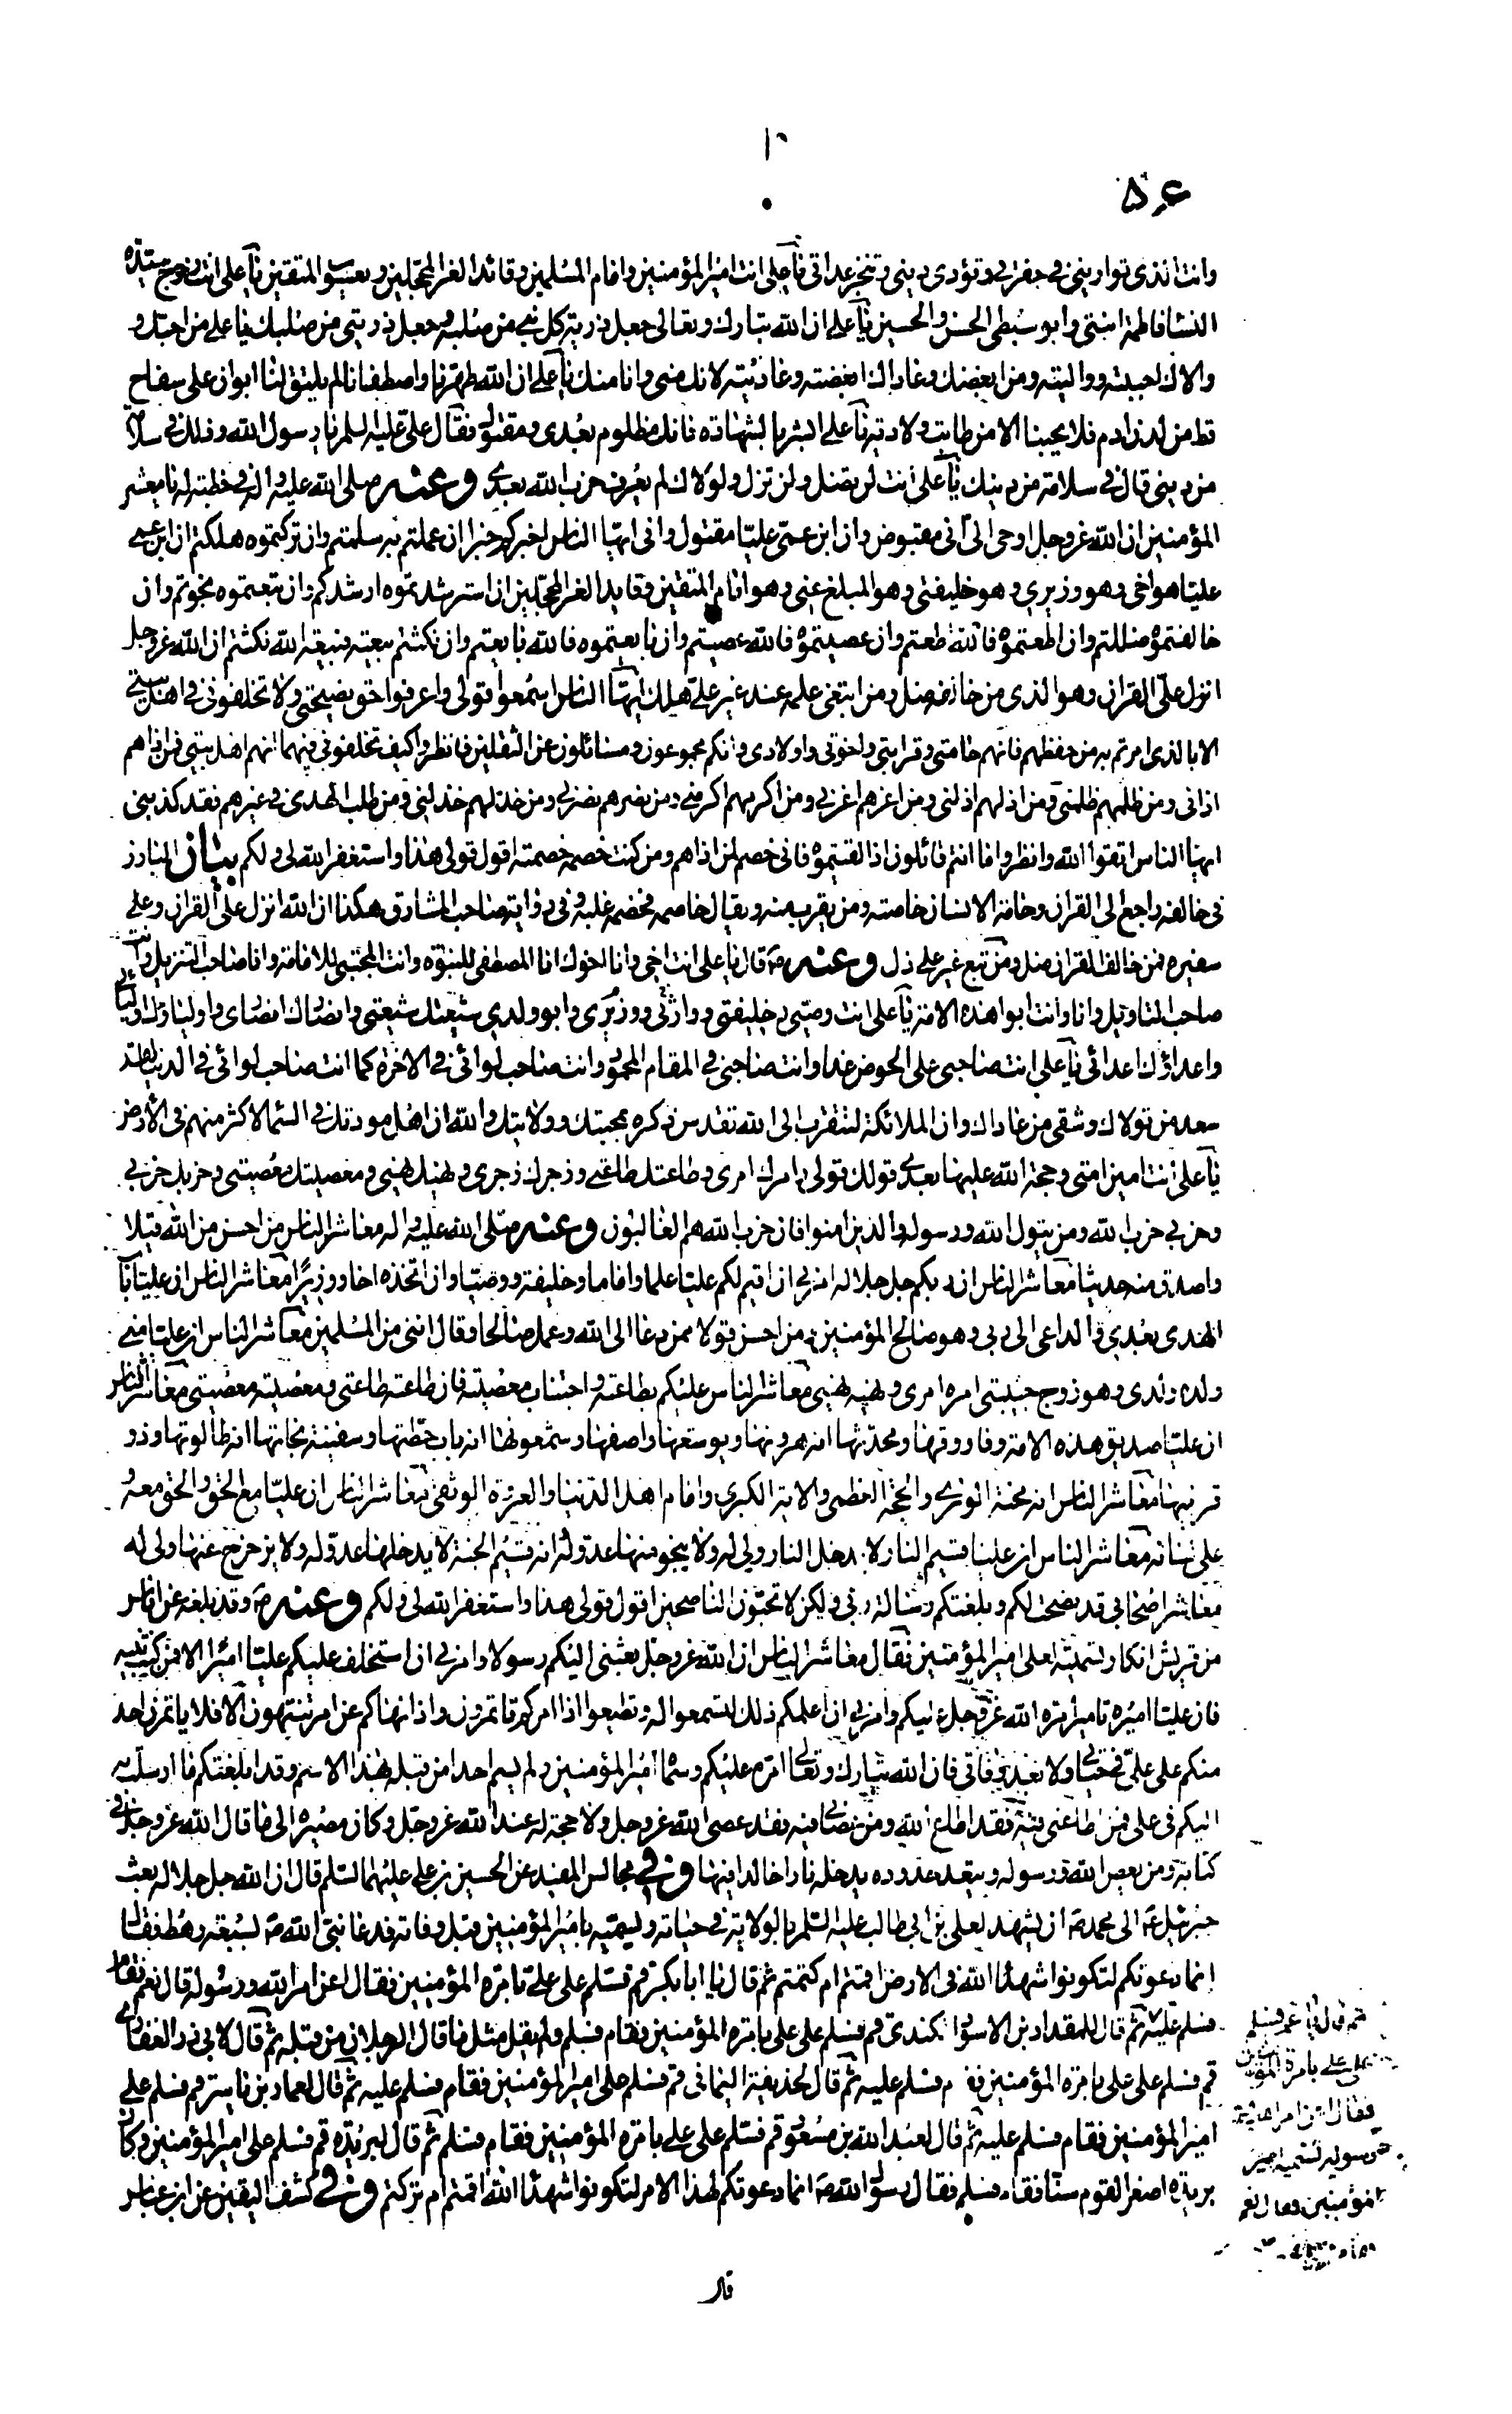 وانت الذى توارينى فى حفرتى وتؤدى دينى وتنجز عداتى يا على انت امير المؤمنين وامام المسلمين وقائد الغر المحجلين ويعسوب المتقين يا على انت زوج سيدة
النسا فاطمة ابنتى وابو سبطى الحسن والحسين يا على ان الله تبارك وتعالى جعل ذرية كل نبى من صلبه وجعل ذريتى من صلبك يا على من احبك و
والاك احببته وواليته ومن ابغضك وعاداك ابغضته وعاديته لانك منى وانا منك يا على ان الله طهرنا واصطفانا لم يلتق لنا ابوان على سفاح
قط من لدن ادم فلا يحبنا الا من طابت ولادته يا على ابشر بالشهادة فانك مظلوم بعدى ومقتول فقال على عليه السلم يا رسول الله وذلك فى سلامة
من دينى قال فى سلامة من دينك يا على انت لن تضل ولن تزل ولولاك لم يعرف حزب الله بعدى وعنه صلى الله عليه واله فى خطبة له يا معشر
المؤمنين ان الله عز وجل اوحى الى انى مقبوض وان ابن عمى عليا مقتول وانى ايها الناس اخبركم خبرا ان عملتم به سلمتم وان تركتموه هلكتم ان ابن عمى
عليا هو اخى وهو وزيرى وهو خليفتى وهو المبلغ عنى وهو امام المتقين وقايد الغر المحجلين ان استرشدتموه ارشدكم وان تبعتموه نجوتم وان
خالفتموه ضللتم وان اطعتموه فالله اطعتم وان عصيتموه فالله عصيتم وان بايعتموه فالله بايعتم وان نكثتم بيعته فبيعة الله نكثتم ان الله عز وجل
انزل على القران وهو الذى من خالفه ضل ومن ابتغى علمه عند غير على هلك ايها الناس اسمعوا قولى واعرفوا حق نصيحتى ولا تخلفونى فى اهل بيتى
الا بالذى امرتم به من حفظهم فانهم حامتى وقرابتى واخوتى واولادى وانكم مجموعون ومسائلون عن الثقلين فانظروا كيف تخلفونى فيهما انهم اهل بيتى فمن اذاهم
اذانى ومن ظلمهم ظلمنى ومن اذلهم اذلنى ومن اعزهم اعزنى ومن اكرمهم اكرمنى ومن نصرهم نصرنى ومن خذلهم خذلنى ومن طلب الهدى فى غيرهم فقد كذبنى
ايها الناس اتقوا الله وانظروا ما انتم قائلون اذا لقيتموه فانى خصم لمن اذاهم ومن كنت خصمه خصمته اقول قولى هذا واستغفر الله لى ولكم بيان البارز
فى خالفه راجع الى القران وحامة الانسان خاصته ومن يقرب منه ويقال خاصمه فخصمه غلبه وفى رواية صاحب المشارق هكذا ان الله انزل على القران وعلى
سفيره فمن خالف القران ضل ومن تبع غير على ذل وعنه ص قال يا على انت اخى وانا اخوك انا المصطفى للنبوة وانت المجتبى للامامة وانا صاحب التنزيل وانت
صاحب التاويل وانا وانت ابوا هذه الامة يا على انت وصيى وخليفتى ووارثى ووزيرى وابو ولدى شيعتك شيعتى وانصارك انصارى واولياؤك اوليائى
واعداؤك اعدائى يا على انت صاحبى على الحوض غدا وانت صاحبى فى المقام المحمود وانت صاحب لوائى فى الاخرة كما انت صاحب لوائى فى الدنيا لقد
سعد من تولاك وشقى من عاداك وان الملائكة لتتقرب الى الله تقدس ذكره بمحبتك وولايتك والله ان اهل مودتك فى السما لاكثر منهم فى الارض
يا على انت امين امتى وحجة الله عليها بعدى قولك قولى وامرك امرى وطاعتك طاعتى وزجرك زجرى ونهيك نهيى ومعصيتك معصيتى وحزبك حزبى
وحزبى حزب الله ومن يتول الله ورسوله والذين امنوا فان حزب الله هم الغالبون وعنه صلى الله عليه واله معاشر الناس من احسن من الله قيلا
واصدق منه حديثا معاشر الناس ان ربكم جل جلاله امرنى ان اقيم لكم عليا علما واماما وخليفة ووصيا وان اتخذه اخا ووزيرا معاشر الناس ان عليا باب
الهدى بعدى والداعى الى ربى وهو صالح المؤمنين ومن احسن قولا ممن دعا الى الله وعمل صالحا وقال اننى من المسلمين معاشر الناس ان عليا منى
ولده ولدى وهو زوج حبيبتى امره امرى ونهيه نهيى معاشر الناس عليكم بطاعته واجتناب معصيته فان طاعته طاعتى ومعصيته معصيتى معاشر الناس
ان عليا صديق هذه الامة وفاروقها ومحدثها انه هرونها ويوشعها واصفها وشمعونها انه باب حطتها وسفينة نجاتها انه طالوتها وذو
قرنيها معاشر الناس انه محنة الورى والحجة العظمى والاية الكبرى وامام اهل الدنيا والعروة الوثقى معاشر الناس ان عليا مع الحق والحق معه و
على لسانه معاشر الناس ان عليا قسيم النار لا يدخل النار ولى له ولا ينجو منها عدو له انه قسيم الجنة لا يدخلها عدو له ولا يزحزح عنها ولى له
معاشر اصحابى قد نصحت لكم وبلغتكم رسالة ربى ولكن لا تحبون الناصحين اقول قولى هذا واستغفر الله لى ولكم وعنه ص وقد بلغه عن اناس
من قريش انكار تسميته لعلى امير المؤمنين فقال معاشر الناس ان الله عز وجل بعثنى اليكم رسولا وامرنى ان استخلف عليكم عليا اميرا الا فمن كنت نبيه
فان عليا اميره تامير امره الله عز وجل عليكم وامرنى ان اعلمكم ذلك لتسمعوا له وتطيعوا اذا امركم تاتمرون واذا نهاكم عن امر تنتهون الا فلا ياتمرن احد
منكم على على فى حياتى ولا بعد وفاتى فان الله تبارك وتعالى امره عليكم وسماه امير المؤمنين ولم يسم احدا من قبله بهذا الاسم وقد ابلغتكم ما ارسلت به
اليكم فى على فمن اطاعنى فيه فقد اطاع الله ومن عصانى فيه فقد عصى الله عز وجل ولا حجة له عند الله عز وجل وكان مصيره الى ما قال الله عز وجل فى
كتابه ومن يعص الله ورسوله ويتعد حدوده يدخله نارا خالدا فيها وفى مجالس المفيد عن الحسين بن على عليهما السلم قال ان الله جل جلاله بعث
جبرئيل ع الى محمد ص ان يشهد لعلى بن ابى طالب عليه السلم بالولاية فى حياته ويسميه بامير المؤمنين قبل وفاته فدعا نبى الله ص لسبعة رهط فقال
انما دعوتكم لتكونوا شهدا الله فى الارض اقمتم ام كتمتم ثم قال يا ابا بكر قم فسلم على على بامرة المؤمنين فقال اعن امر الله ورسوله قال نعم فقام
فسلم عليه ثم قال للمقداد بن الاسود الكندى قم فسلم على على بامرة المؤمنين فقام فسلم ولم يقل مثل ما قال الرجلان من قبله ثم قال لابى ذر الغفارى
قم فسلم على على بامرة المؤمنين فقام فسلم عليه ثم قال لحذيفة اليمانى قم فسلم على امير المؤمنين فقام فسلم عليه ثم قال لعمار بن ياسر قم فسلم على
امير المؤمنين فقام فسلم عليه ثم قال لعبد الله بن مسعود قم فسلم على على بامرة المؤمنين فقام فسلم ثم قال لبريدة قم فسلم على امير المؤمنين وكان
بريدة اصغر القوم سنا فقام فسلم فقال رسول الله ص انما دعوتكم لهذا الامر لتكونوا شهدا الله اقمتم ام تركتم وفى كشف اليقين عن ابن عباس
قال
ثم قال يا عمر قم فسلم
على على بامرة المؤمنين
فقال اعن امر الله و
رسوله تسميه امير
المؤمنين فقال نعم